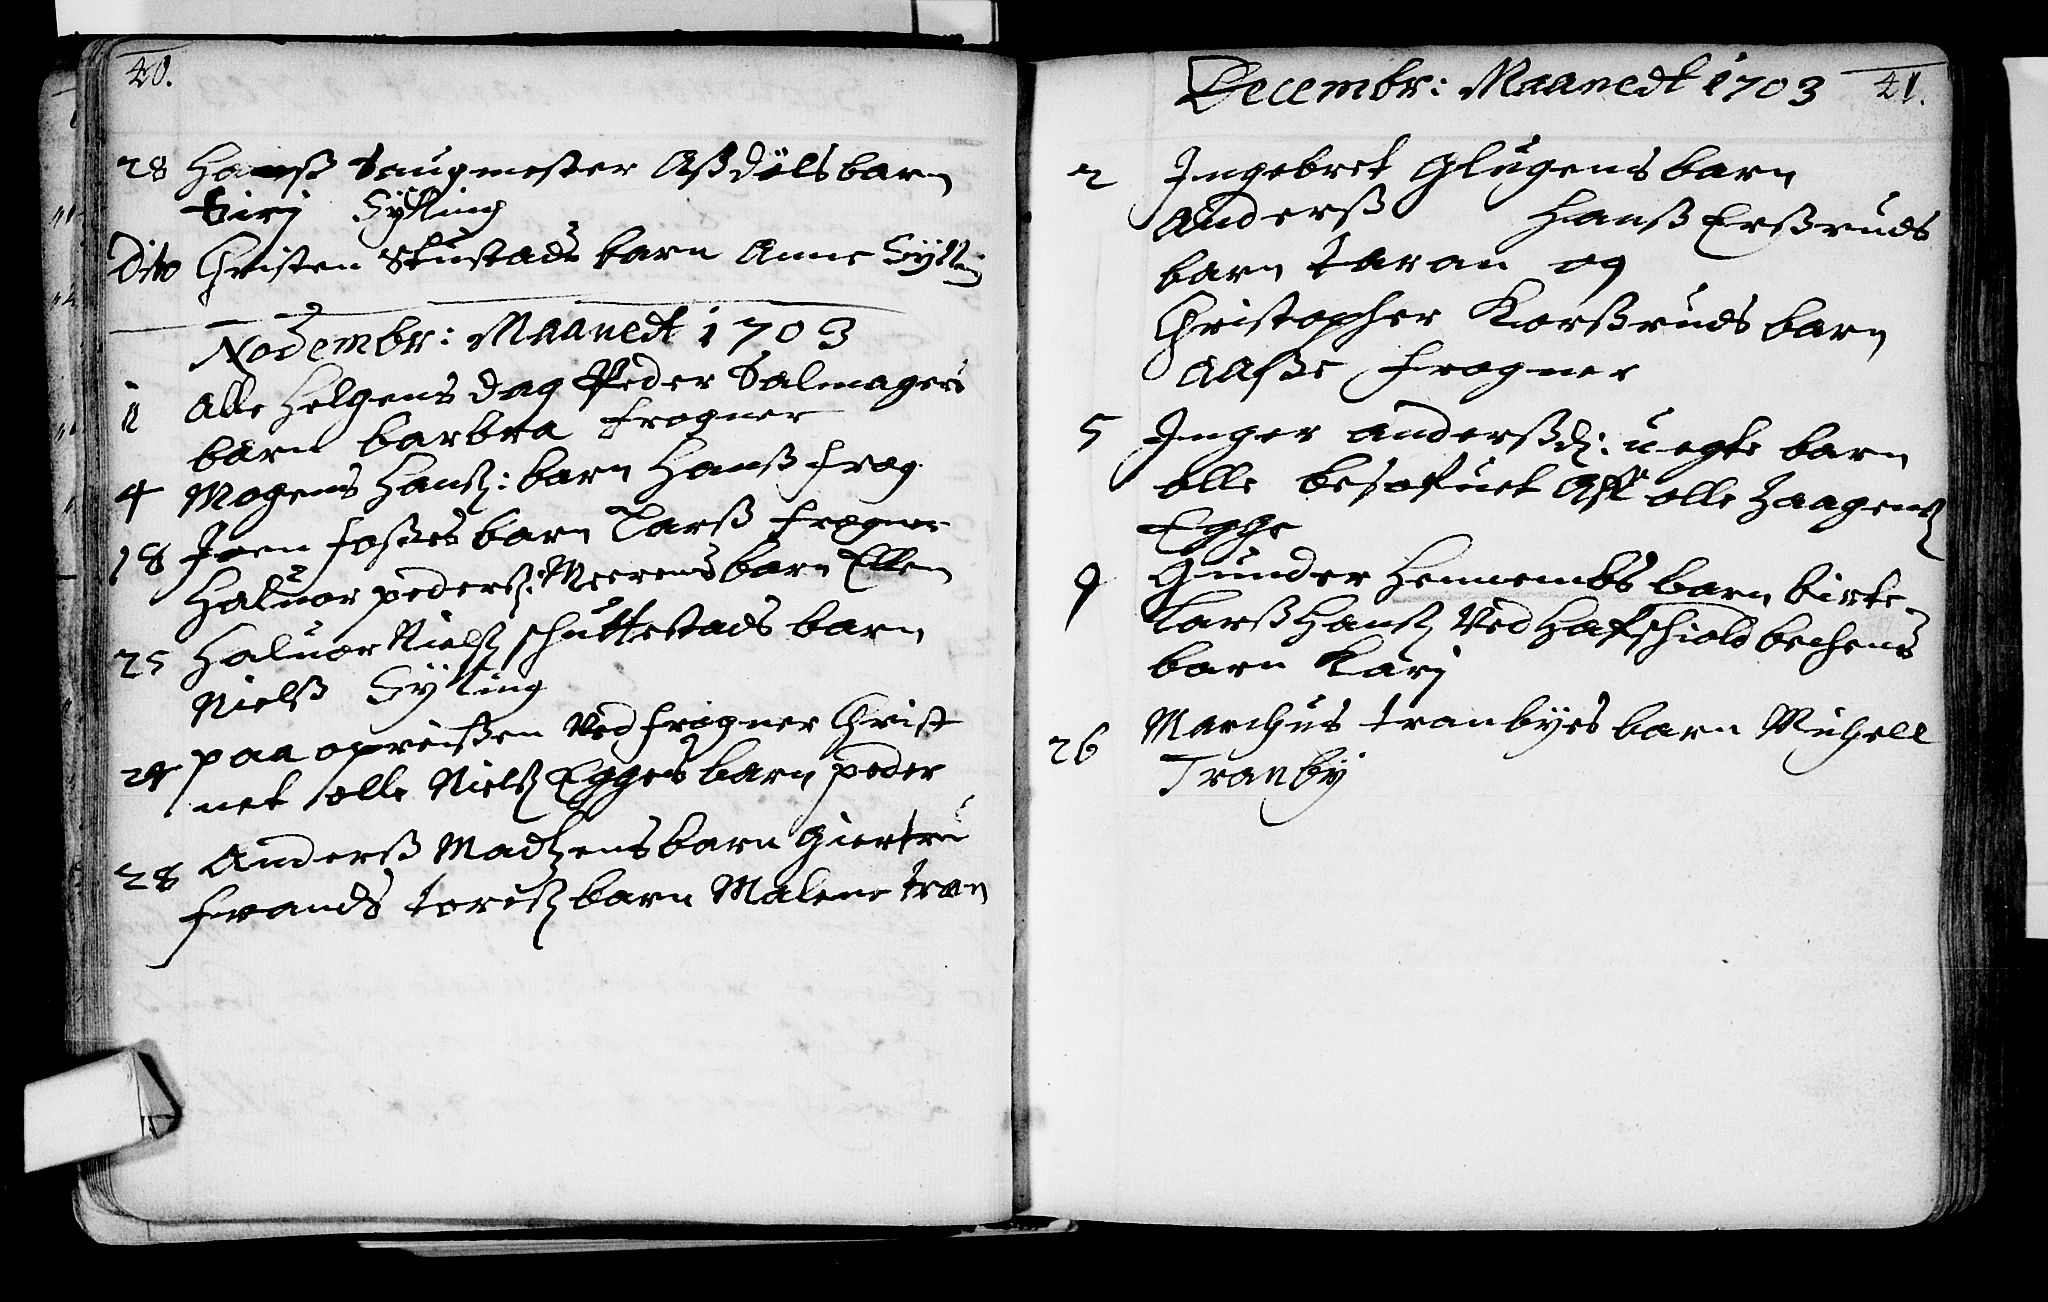 40.
28 Hanß Saugmester Aßdøls barn
Sirj Sylling
Dito Christen Skustads barn Anne Sylling
Novembr: Maanedt 1703
1 Alle Helgens dag Peder Salmagers
barn barbra frogner
4 Mogens Hanß: barn Hanß frog
18 Joen foßes barn Larß frogner
Haluor pederß: Meerens barn Ellen
25 Haluor Nielß schuttestads barn
Nielß Sylling
29 paa opreißen Ved frogner Christ
net olle Nielß Egges barn peder
28 Anderß Madtzens barn giertru
frands toreß barn Malene tran
Decembr: Maanedt 1703 41.
2 Ingebret Glugens barn
Anderß Hanß Erßruds
barn taran og
Christopher Korßruds barn
Aaße frogner
5 Inger anderßd: uegte barn
olle besofuet Aff olle Haagenß
Egge
9 Gunder Hennembs barn birte
Larß Hanß Ved Hafschiold bechens
barn Karj
26 Marchus tranbyes barn Michell
Tranby